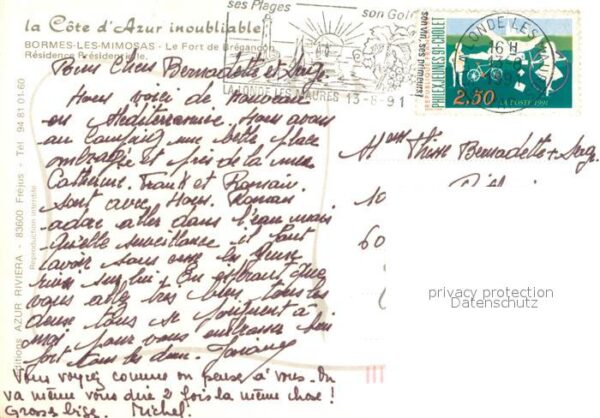 la Côte d'Azur inoubliable
BORMES-LES-MIMOSAS - Le Fort de Brégançon
Résidence Présidentielle.
ses Plages
son Golf
LA LONDE LES MAURES 13-8-91
LA LONDE LES MAURES
16 H
13-8
PHILEXJEUNES 91-CHOLET
REPUBLIQUE
2,50
LA POSTE 1991
son vin, ses primeurs
Editions AZUR RIVIERA - 83600 Fréjus - Tél. 94 81 01 60
Reproduction interdite
Bien Chers Bernadette et Serge.
Nous voici de nouveau
en Méditerranée. Nous avons
au Camping une belle place
ombragée et près de la mer
Catherine. Franck et Romain.
sont avec Nous. Romain
adore aller dans l'eau mais
Qu'elle surveillance il faut
l'avoir sans cesse
sur lui. En espérant que
vous allez très bien, tous les
deux tous se joignent à
moi pour vous embrasser bien
fort tous les deux.
Vous voyez comme on pense à vous. On
va même vous dire 2 fois la même chose!
Grosse bise. Michel.
Bernadette + Serge
10
60
privacy protection
Datenschutz